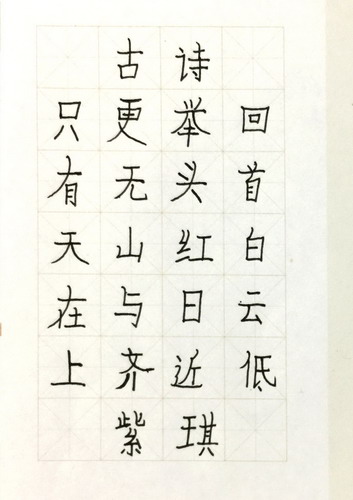 古诗
只有天在上
更无山与齐
举头红日近
回首白云低
紫琪